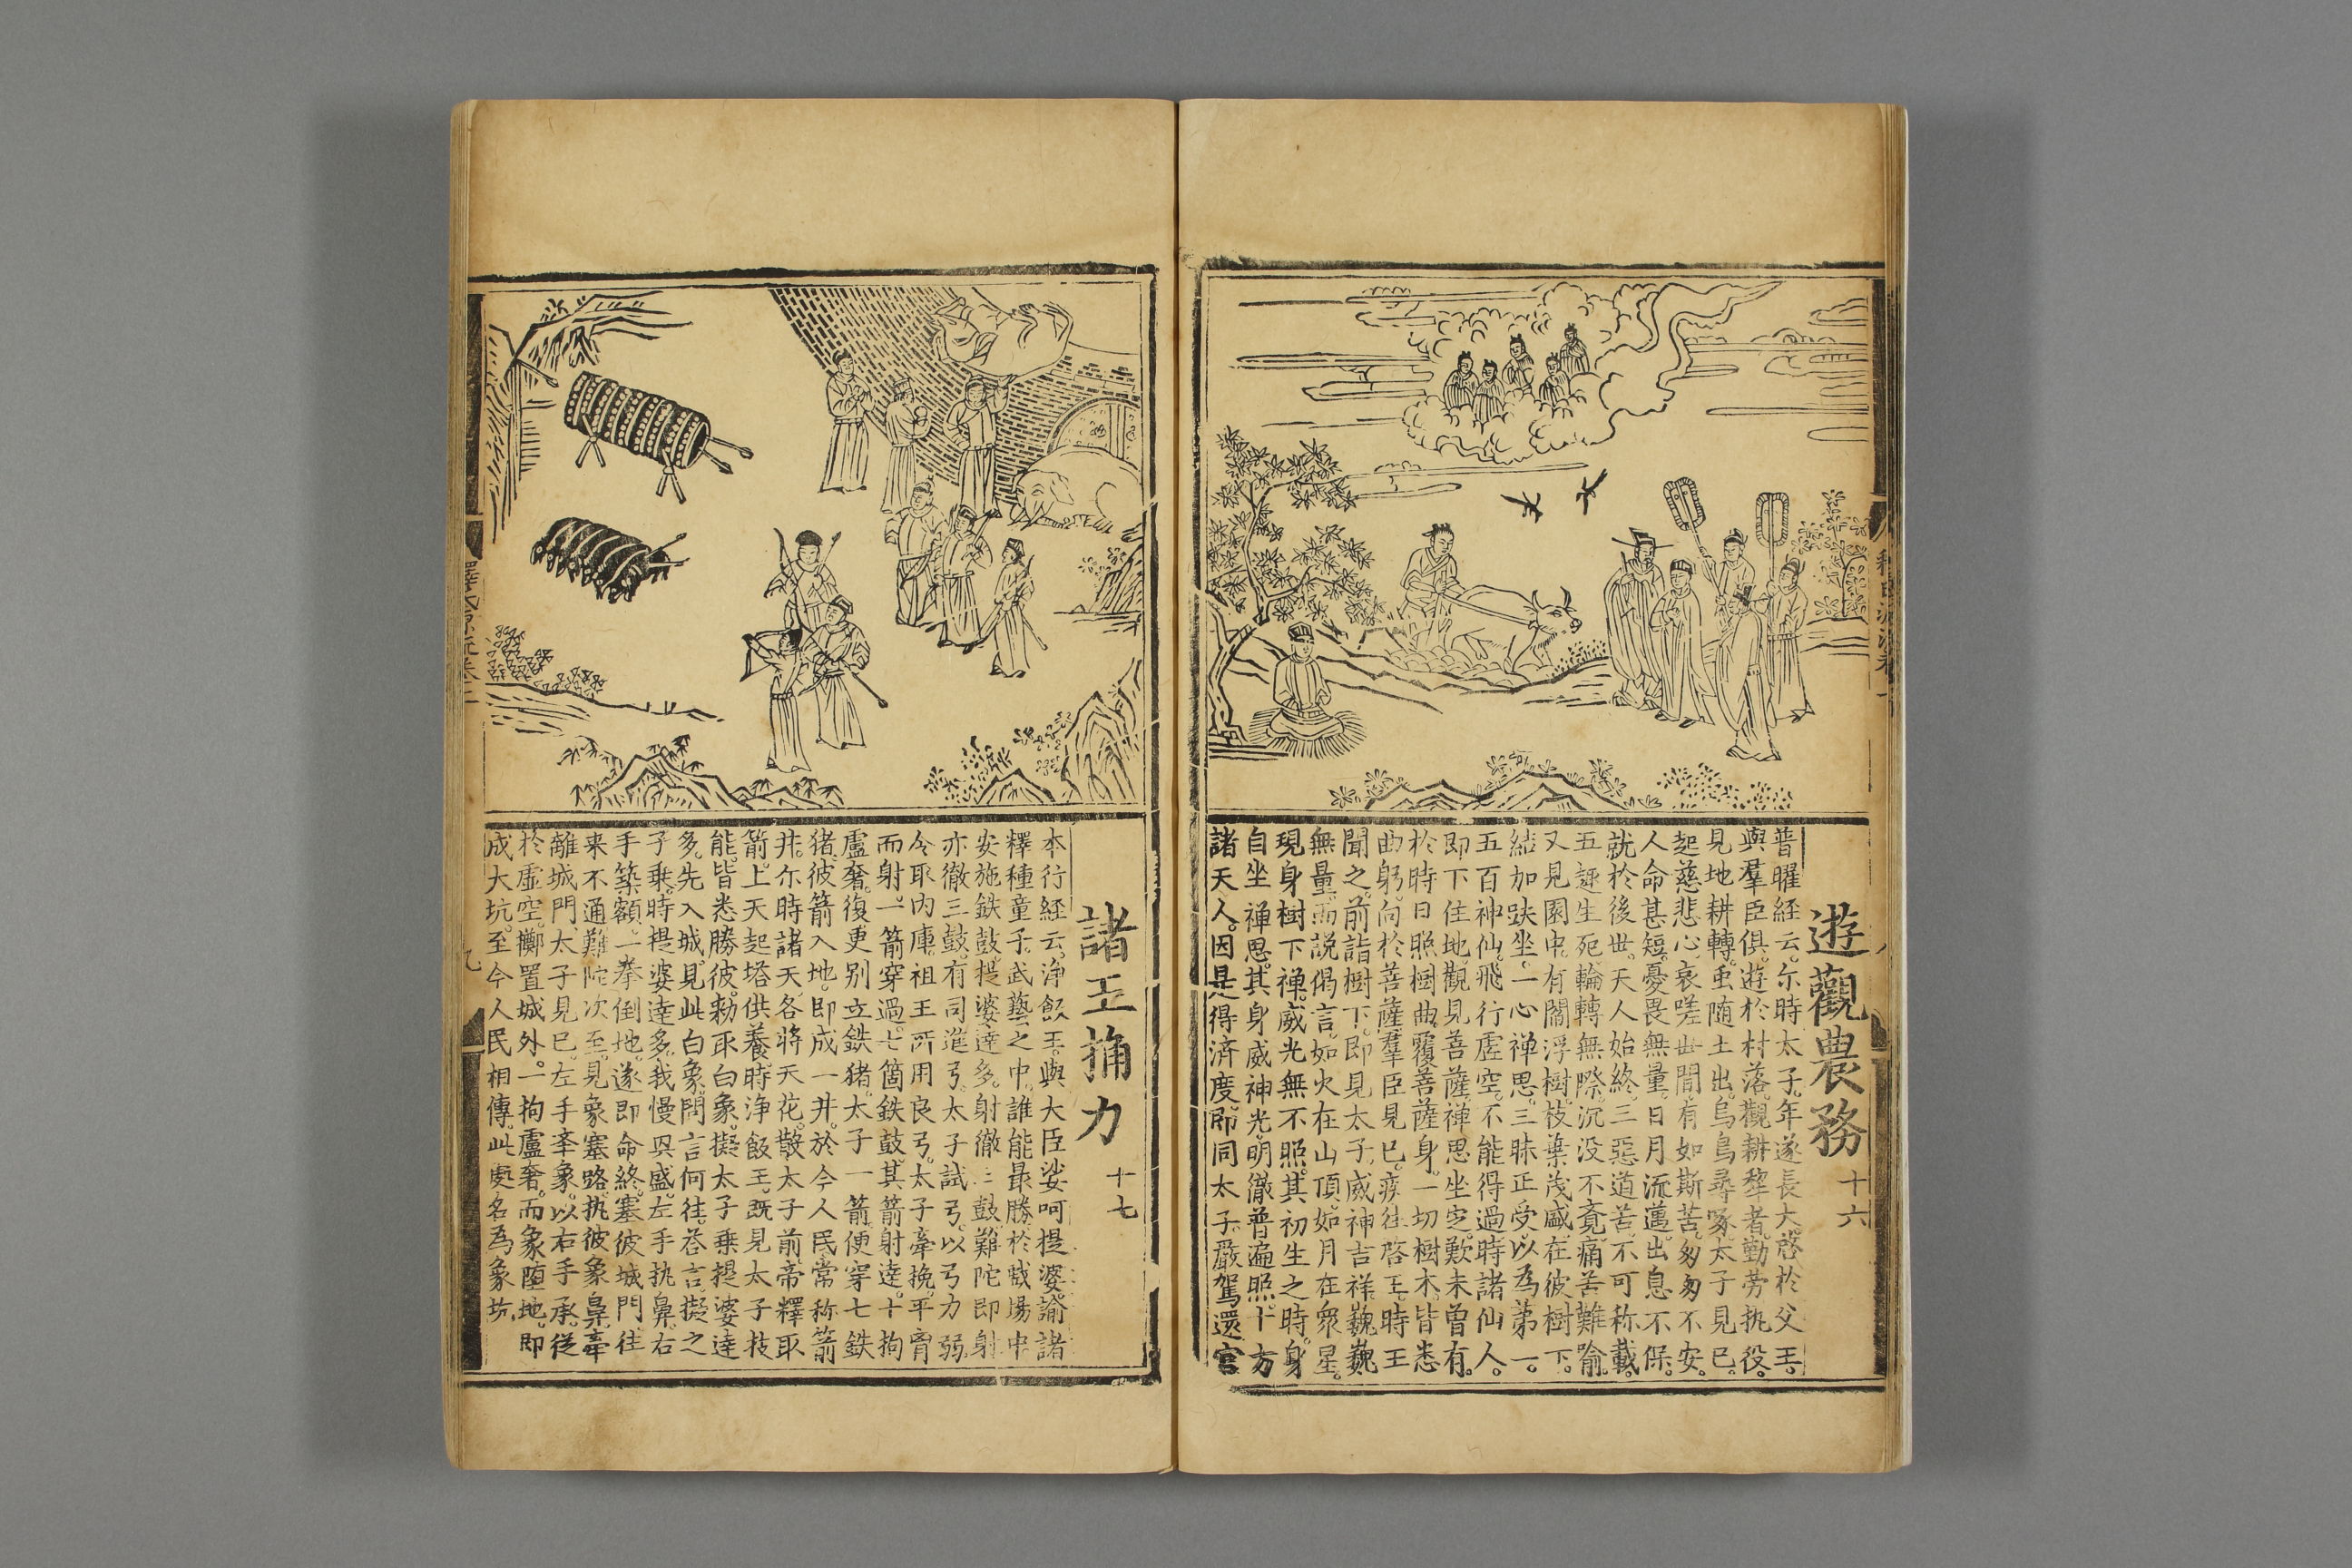 遊觀農務 十六
普曜經云。尒時太子。年遂長大。啓於父王。
與羣臣俱。遊於村落。觀耕犂者。勤勞执役。
見地耕轉。䖝随土出。烏鳥尋啄。太子見已。
起慈悲心。哀嗟世間。有如斯苦。匆匆不安。
人命甚短。憂畏無量。日月流邁。出息不保。
就於後世。天人始終。三惡道苦。不可称載。
五趣生死。輪轉無際。沉没不竟。痛苦難喻。
又見園中。有閻浮樹。枝葉茂盛。在彼樹下。
結加趺坐。一心禅思。三昧正受。以為第一。
五百神仙。飛行虛空。不能得過。時諸仙人。
即下住地。觀見菩薩。禅思坐定。歎未曾有。
於時日照。樹曲覆菩薩身。一切樹木。皆悉
曲躬。向於菩薩。羣臣見已。疾往啓王。時王
聞之。前詣樹下。即見太子。威神吉祥。巍巍
無量。而説偈言。如火在山頂。如月在衆星。
現身樹下禅。威光無不照。其初生之時。身
自坐禅思。其身威神光。明徹普遍照。十方
諸天人。因是得済度。即同太子。嚴駕還宮
諸王捔力 十七
本行経云。浄飯王。與大臣娑呵提婆。諭諸
釋種童子。武藝之中。誰能最勝。於戲場中
安施鉄鼓。提婆達多。射徹三鼓。難陀即射
亦徹三鼓。有司進弓。太子試弓。以弓力弱。
令取内庫。祖王所用良弓。太子牽挽。平胷
而射。一箭穿過。七箇鉄鼓。其箭射達。十拘
盧奢。復更别立鉄猪。太子一箭。便穿七鉄
猪。彼箭入地。即成一井。於今人民。常称箭
井。尒時諸天。各将天花。散太子前。帝釋取
箭。上天起塔供養。時浄飯王。既見太子技
能。皆悉勝彼。勅取白象。擬太子乗。提婆達
多。先入城。見此白象。問言何往。荅言。擬之
子乗。時提婆達多。我慢㒷盛。左手执鼻。右
手築額。一拳倒地。遂即命終。塞彼城門。往
来不通。難陀次至。見象塞路。执彼象鼻。牽
離城門。太子見已。左手牽象。以右手承。従
於虛空。擲置城外。一拘盧奢。而象堕地。即
成大坑。至今人民相傳。此處名為象坑。
九